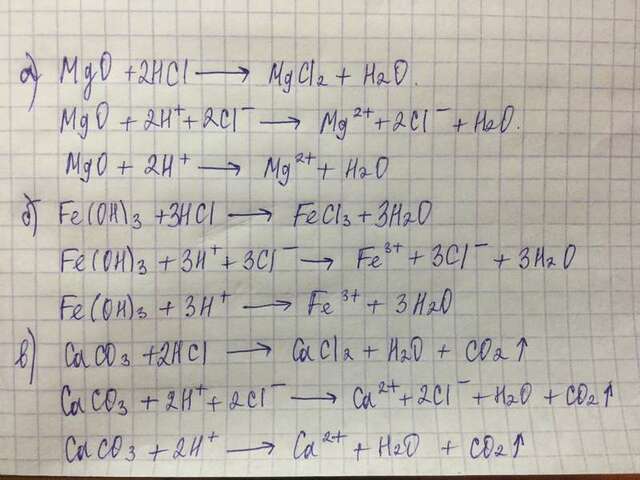 а) MgO + 2HCl ⟶ MgCl₂ + H₂O.
MgO + 2H⁺ + 2Cl⁻ ⟶ Mg²⁺ + 2Cl⁻ + H₂O.
MgO + 2H⁺ ⟶ Mg²⁺ + H₂O
б) Fe(OH)₃ + 3HCl ⟶ FeCl₃ + 3H₂O
Fe(OH)₃ + 3H⁺ + 3Cl⁻ ⟶ Fe³⁺ + 3Cl⁻ + 3H₂O
Fe(OH)₃ + 3H⁺ ⟶ Fe³⁺ + 3H₂O
в) CaCO₃ + 2HCl ⟶ CaCl₂ + H₂O + CO₂↑
CaCO₃ + 2H⁺ + 2Cl⁻ ⟶ Ca²⁺ + 2Cl⁻ + H₂O + CO₂↑
CaCO₃ + 2H⁺ ⟶ Ca²⁺ + H₂O + CO₂↑